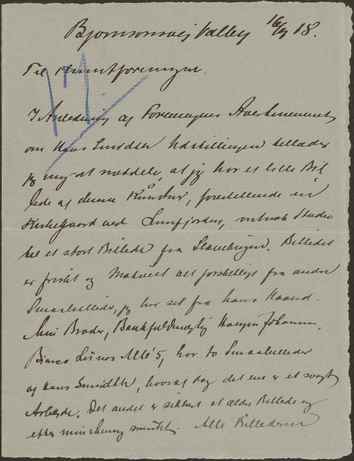 Bjørnsonsvej Valby 16/9 18.
Til Kunstforeningen.
I Anledning af Foreningens Avertissement
om Hans Smidths Udstillingen tillader
jeg mig at meddele, at jeg har et lille Bil
lede af denne Kunstner, forestillende en
Kirkegaard ved Limfjorden, Studie
til et stort Billede fra Billedet
er friskt og malerisk forskelligt fra andre
Smaabilleder, jeg har set fra hans Haand.
Min Broder, Bankfuldmægtig Johansen,
Allé 5, har to Smaabilleder
af Hans Smidth, hvoraf dog det ene er et svagt
Arbejde. Det andet er sikkert et ældre Billede og
efter min Mening smukt. Alle Billederne